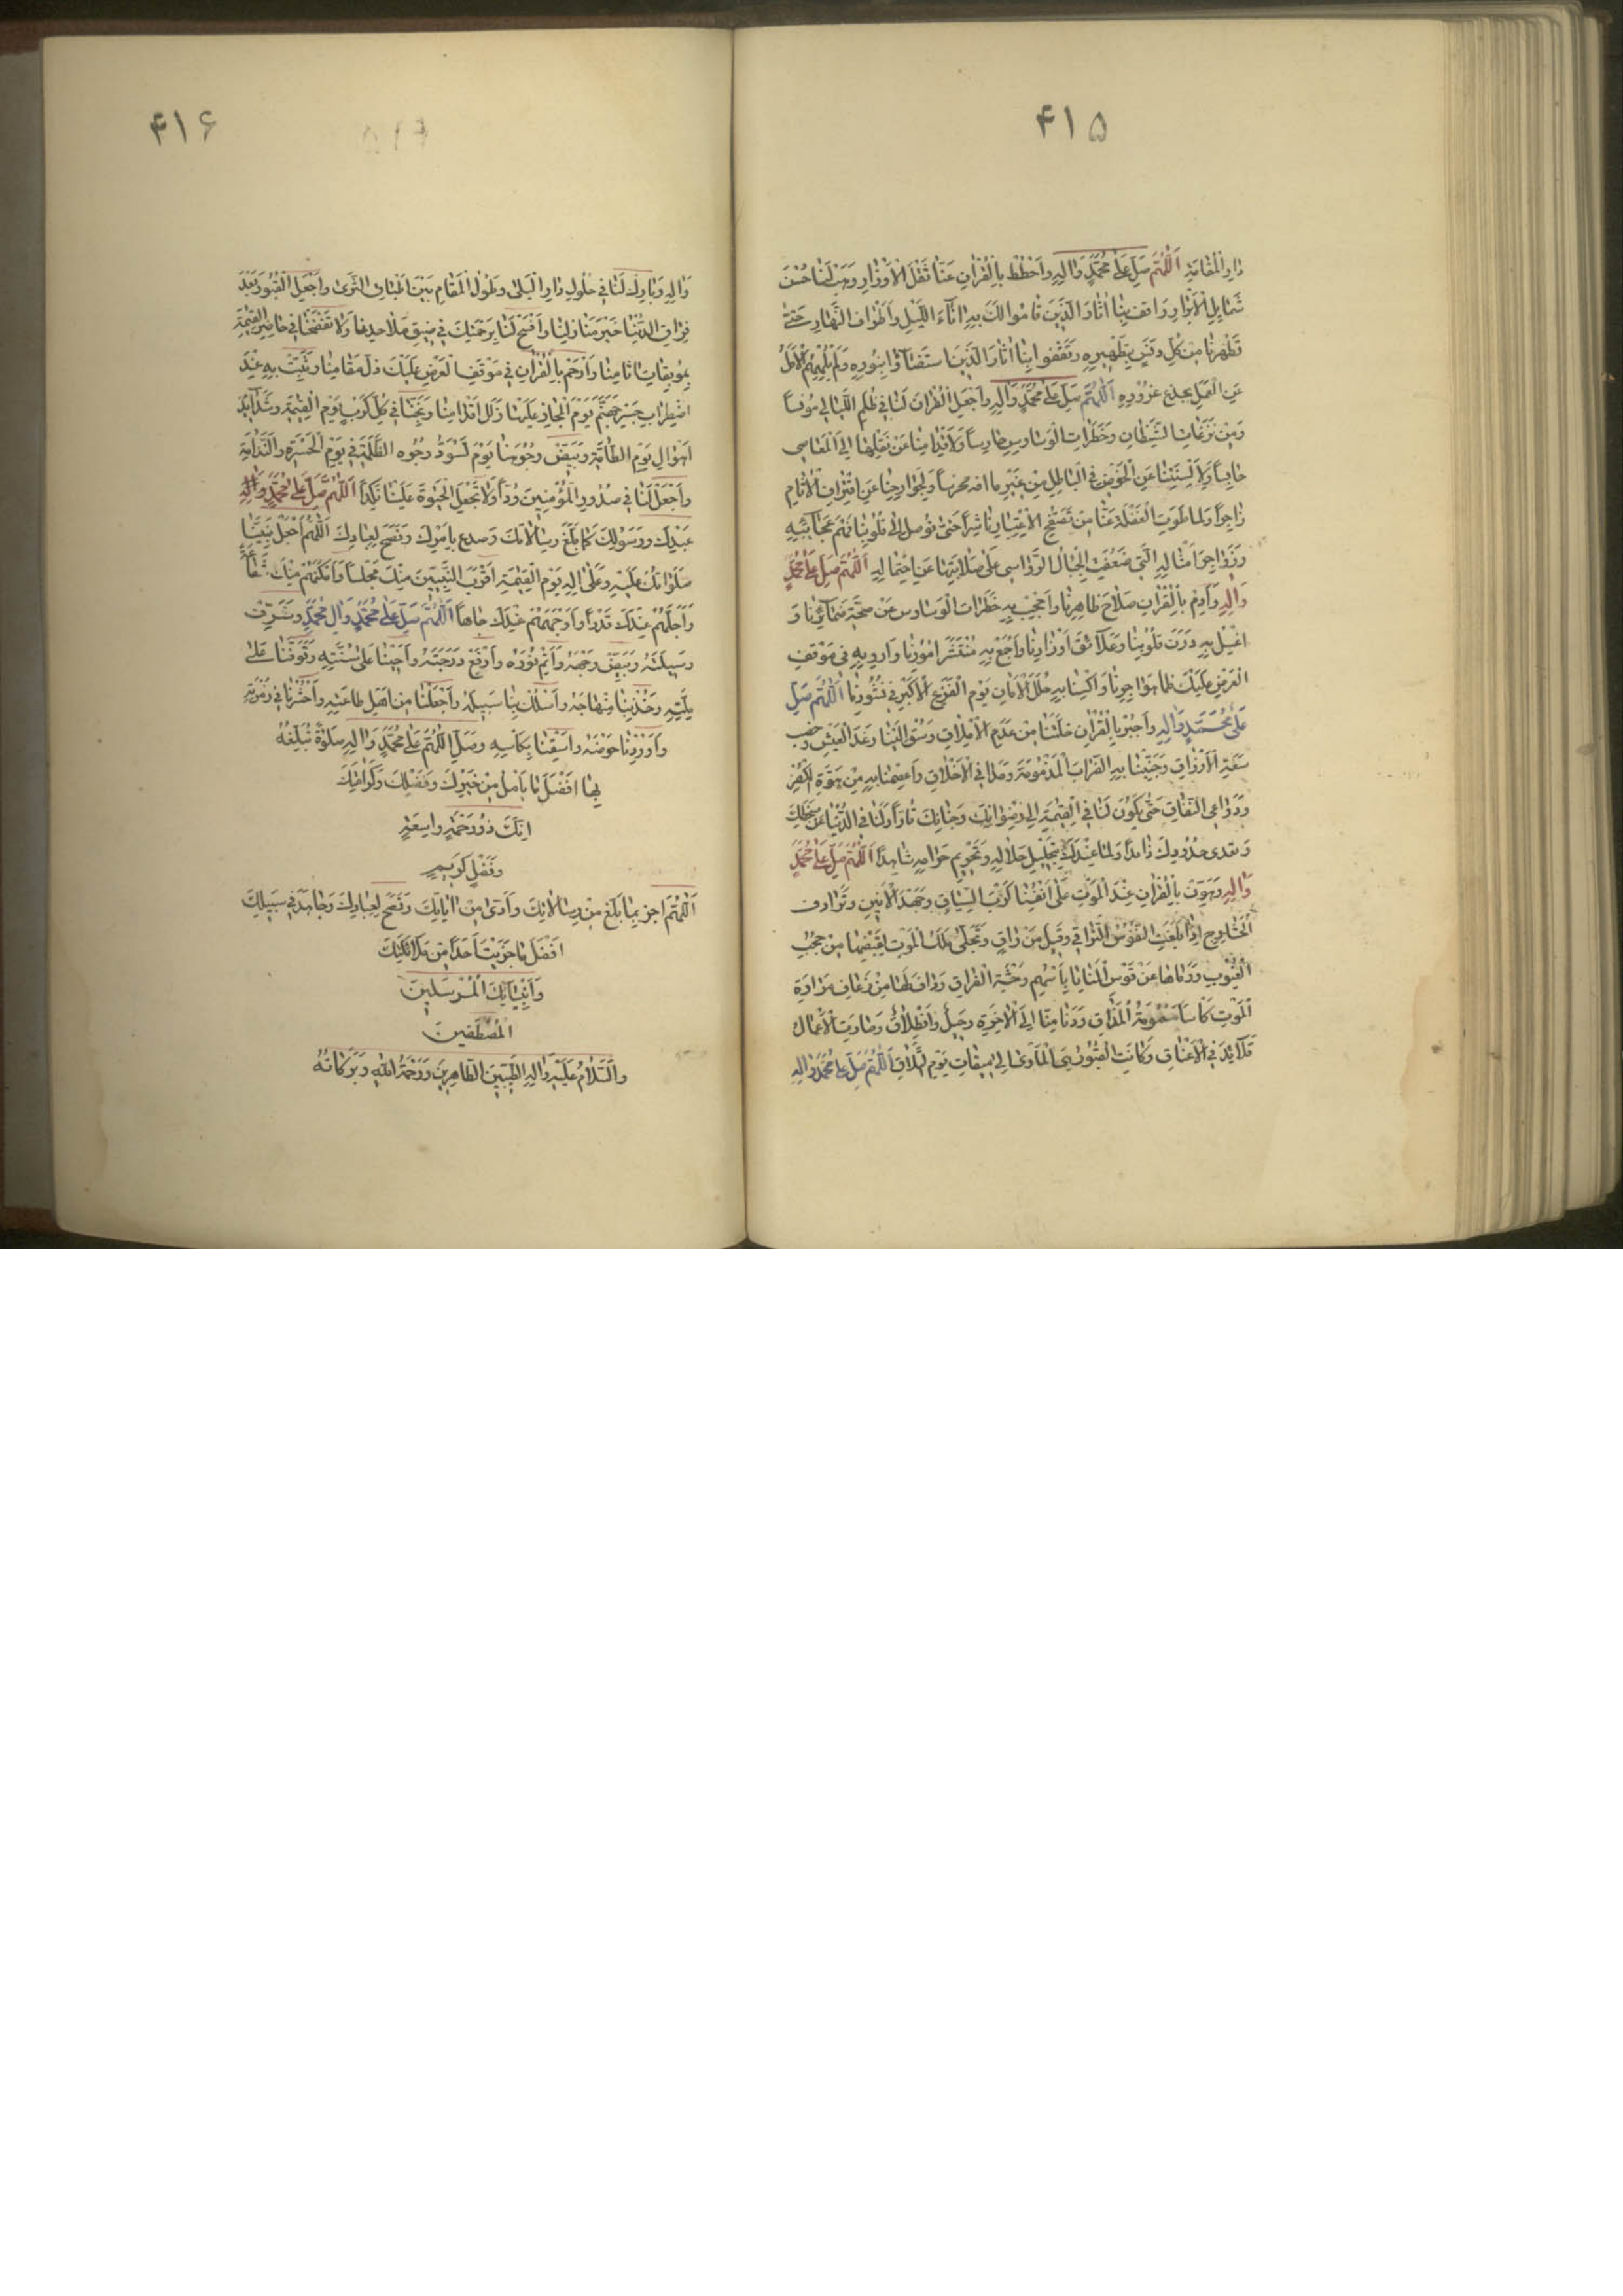 ۴۱۵
دارَ الْمُقامَةِ اَللّٰهُمَّ صَلِّ عَلىٰ مُحَمَّدٍ وَاٰلِهِ وَاحْطُطْ بِالْقُرْاٰنِ عَنّا ثِقْلَ الْاَوْزارِ وَهَبْ لَنا حُسْنَ
شَمايِلِ الْاَبْرارِ وَاقْفُ بِنا اٰثارَ الَّذينَ قامُوا لَكَ بِهِ اٰناءَ اللَّيْلِ وَاَطْرافَ النَّهارِ حَتّىٰ
تُطَهِّرَنا مِنْ كُلِّ دَنَسٍ بِتَطْهيرِهِ وَتَقْفُوا بِنا اٰثارَ الَّذينَ اسْتَضاؤُا بِنُورِهِ وَلَمْ يُلْهِهِمُ الْاَمَلُ
عَنِ الْعَمَلِ بخدع غروره اَللّٰهُمَّ صَلِّ عَلىٰ مُحَمَّدٍ وَاٰلِهِ وَاجْعَلِ الْقُرْاٰنَ لَنا فى ظُلَمِ اللَّيالى مُونِساً
وَمِنْ نَزَغاتِ الشَّيْطانِ وَخَطَراتِ الْوَساوِسِ حارِساً وَلِاَقْدامِنا عَنْ نَقْلِها اِلَى الْمَعاصى
حابِساً وَلِاَلْسِنَتِنا عَنِ الْخَوْضِ فِى الْباطِلِ مِنْ غَيْرِ ما افه مخرسا وَلِجَوارِحِنا عَنِ اقْتِرافِ الْاٰثامِ
زاجِراً وَلِما طَوَتِ الْغَفْلَةُ عَنّا مِنْ تَصَفُّحِ الْاِعْتِبارِ ناشِراً حَتّىٰ تُوصِلَ اِلىٰ قُلُوبِنا فَهْمَ عَجائِبِهِ
وَزَواجِرَ اَمْثالِهِ الَّتى ضَعُفَتِ الْجِبالُ الرَّواسى عَلىٰ صَلابَتِها عَنِ احْتِمالِهِ اَللّٰهُمَّ صَلِّ عَلىٰ مُحَمَّدٍ
وَاٰلِهِ وَاَدِمْ بِالْقُرْاٰنِ صَلاحَ ظاهِرِنا وَاحْجُبْ بِهِ خَطَراتِ الْوَساوِسِ عَنْ صِحَّةِ ضَمائِرِنا وَ
اغْسِلْ بِهِ دَرَنَ قُلُوبِنا وَعَلائِقَ اَوْزارِنا وَاجْمَعْ بِهِ مُنْتَشَرَ اُمُورِنا وَاَرْوِ بِهِ فى مَوْقِفِ
الْعَرْضِ عَلَيْكَ ظَمَأَ هَواجِرِنا وَاكْسُنا بِهِ حُلَلَ الْاَمانِ يَوْمَ الْفَزَعِ الْاَكْبَرِ فى نُشُورِنا اَللّٰهُمَّ صَلِّ
عَلىٰ مُحَمَّدٍ وَاٰلِهِ وَاجْبُرْ بِالْقُرْاٰنِ خَلَّتَنا مِنْ عَدَمِ الْاِمْلاقِ وَسُقْ اِلَيْنا رَغَدَ الْعَيْشِ وَخِصْبَ
سَعَةِ الْاَرْزاقِ وَجَنِّبْنا بِهِ الضَّرائِبَ الْمَذْمُومَةَ وَمَدانِىَ الْاَخْلاقِ وَاعْصِمْنا بِهِ مِنْ هُوَّةِ الْكُفْرِ
وَدَواعِى النِّفاقِ حَتّىٰ يَكُونَ لَنا فِى الْقِيٰمَةِ اِلىٰ رِضْوانِكَ وَجِنانِكَ قائداً وَلَنا فِى الدُّنْيا عَنْ سَخَطِكَ
وَتَعَدّى حُدُودِكَ ذائِداً وَلِما عِنْدَكَ بِتَحْليلِ حَلالِهِ وَتَحْريمِ حَرامِهِ شاهِداً اَللّٰهُمَّ صَلِّ عَلىٰ مُحَمَّدٍ
وَاٰلِهِ وَهَوِّنْ بِالْقُرْاٰنِ عِنْدَ الْمَوْتِ عَلىٰ اَنْفُسِنا كَرْبَ السِّياقِ وَجَهْدَ الْاَنينِ وَتَرادُفَ
الْحَشارِجِ اِذا بَلَغَتِ النُّفُوسُ التَّراقِىَ وَقيلَ مَنْ راقٍ وَتَجَلّىٰ مَلَكُ الْمَوْتِ لِقَبْضِها مِنْ حُجُبِ
الْغُيُوبِ وَرَماها عَنْ قَوْسِ الْمَنايا بِاَسْهُمِ وَحْشَةِ الْفِراقِ وَدافَ لَها مِنْ ذُعافِ مَرارَةِ
الْمَوْتِ كَأْساً مَسْمُومَةَ الْمَذاقِ وَدَنا مِنّا اِلَى الْاٰخِرَةِ رَحيلٌ وَانْطِلاقٌ وَصارَتِ الْاَعْمالُ
قَلائِدَ فِى الْاَعْناقِ وَكانَتِ الْقُبُورُ هِىَ الْمَأْوىٰ اِلىٰ ميقاتِ يَوْمِ التَّلاقِ اَللّٰهُمَّ صَلِّ عَلىٰ مُحَمَّدٍ وَاٰلِهِ
۴۱۶
وَاٰلِهِ وَبارِكْ لَنا فى حُلُولِ دارِ الْبِلىٰ وَطُولِ الْمُقامِ بَيْنَ اَطْباقِ الثَّرىٰ وَاجْعَلِ الْقُبُورَ بَعْدَ
فِراقِ الدُّنْيا خَيْرَ مَنازِلِنا وَافْسَحْ لَنا بِرَحْمَتِكَ فى ضيقِ مَلاحِدِنا وَلا تَفْضَحْنا فى حاضِرِى الْقِيٰمَةِ
بِمُوبِقاتِ اٰثامِنا وَارْحَمْ بِالْقُرْاٰنِ فى مَوْقِفِ الْعَرْضِ عَلَيْكَ ذُلَّ مَقامِنا وَثَبِّتْ بِهِ عِنْدَ
اضْطِرابِ جِسْرِ جَهَنَّمَ يَوْمَ الْمَجازِ عَلَيْها زَلَلَ اَقْدامِنا وَنَجِّنا فى كُلِّ كَرْبٍ يَوْمَ الْقِيٰمَةِ وَشَدائِدِ
اَهْوالِ يَوْمِ الطّامَّةِ وَبَيِّضْ وُجُوهَنا يَوْمَ تَسْوَدُّ وُجُوهُ الظَّلَمَةِ فى يَوْمِ الْحَسْرَةِ وَالنَّدامَةِ
وَاجْعَلْ لَنا فى صُدُورِ الْمُؤْمِنينَ وُدّاً وَلا تَجْعَلِ الْحَيٰوةَ عَلَيْنا نَكَداً اَللّٰهُمَّ صَلِّ عَلىٰ مُحَمَّدٍ وَاٰلِهِ
عَبْدِكَ وَرَسُولِكَ كَما بَلَّغَ رِسالاتِكَ وَصَدَعَ بِاَمْرِكَ وَنَصَحَ لِعِبادِكَ اَللّٰهُمَّ اجْعَلْ نَبِيَّنا
صَلَواتُكَ عَلَيْهِ وَعَلىٰ اٰلِهِ يَوْمَ الْقِيٰمَةِ اَقْرَبَ النَّبِيّينَ مِنْكَ مَجْلِساً وَاَمْكَنَهُمْ مِنْكَ شَفاعَةً
وَاَجَلَّهُمْ عِنْدَكَ قَدْراً وَاَوْجَهَهُمْ عِنْدَكَ جاهاً اَللّٰهُمَّ صَلِّ عَلىٰ مُحَمَّدٍ وَاٰلِ مُحَمَّدٍ وَشَرِّفْ
وَسيلَتَهُ وَبَيِّضْ وَجْهَهُ وَاَتِمَّ نُورَهُ وَارْفَعْ دَرَجَتَهُ وَاَحْيِنا عَلىٰ سُنَّتِهِ وَتَوَفَّنا عَلىٰ
مِلَّتِهِ وَخُذْ بِنا مِنْهاجَهُ وَاسْلُكْ بِنا سَبيلَهُ وَاجْعَلْنا مِنْ اَهْلِ طاعَتِهِ وَاحْشُرْنا فى زُمْرَتِهِ
وَاَوْرِدْنا حَوْضَهُ وَاسْقِنا بِكَأْسِهِ وَصَلِّ اَللّٰهُمَّ عَلىٰ مُحَمَّدٍ وَاٰلِهِ صَلوٰةً تُبَلِّغُهُ
بِها اَفْضَلَ ما يَأْمُلُ مِنْ خَيْرِكَ وَفَضْلِكَ وَكَرامَتِكَ
اِنَّكَ ذُو رَحْمَةٍ واسِعَةٍ
وَفَضْلٍ كَريمٍ
اَللّٰهُمَّ اجْزِهِ بِما بَلَّغَ مِنْ رِسالاتِكَ وَاَدّىٰ مِنْ اٰياتِكَ وَنَصَحَ لِعِبادِكَ وَجاهَدَ فى سَبيلِكَ
اَفْضَلَ ما جَزَيْتَ اَحَداً مِنْ مَلائِكَتِكَ
وَاَنْبِيائِكَ الْمُرْسَلينَ
الْمُصْطَفَيْنَ
وَالسَّلامُ عَلَيْهِ وَاٰلِهِ الطَّيِّبينَ الطّاهِرينَ وَرَحْمَةُ اللهِ وَبَرَكاتُهُ